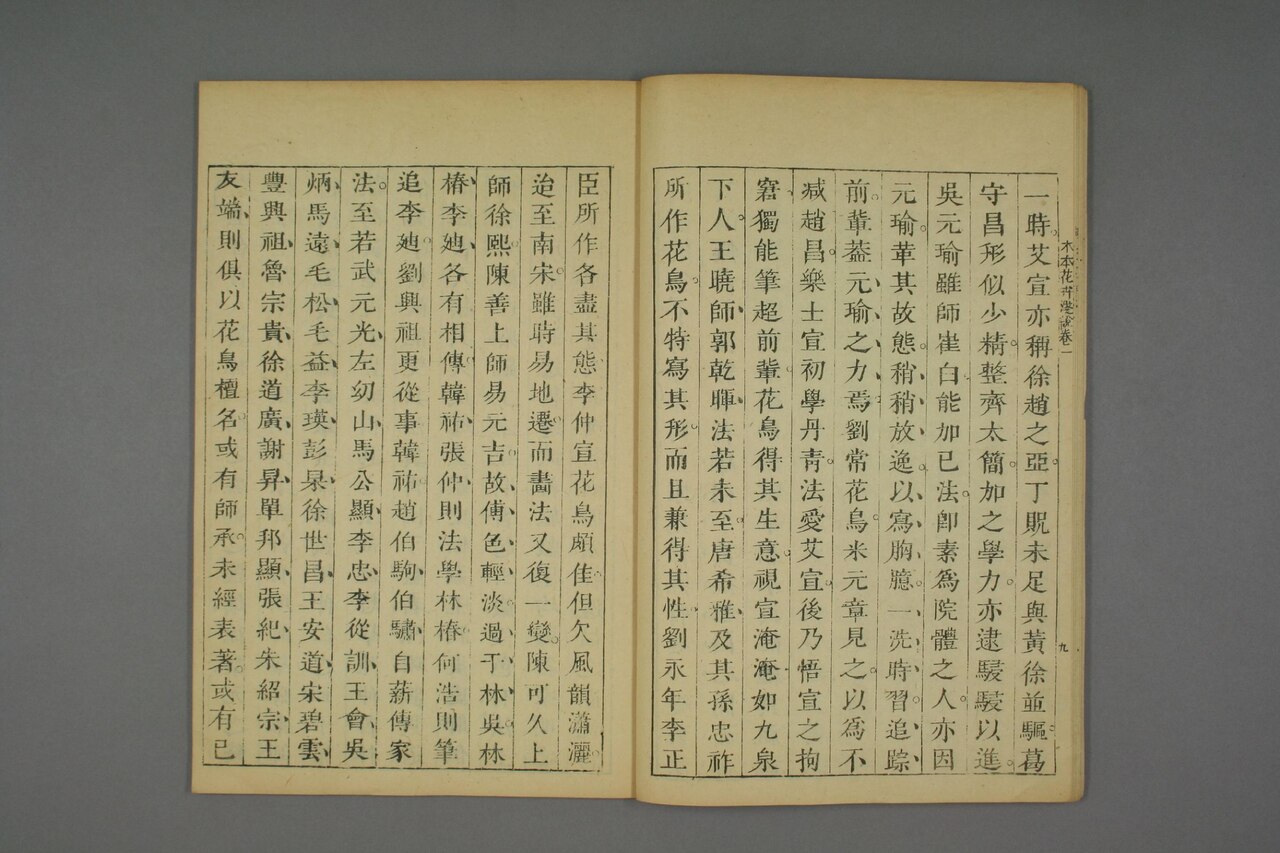 木本花卉淺說卷一
九
一時艾宣亦稱徐趙之亞丁貺未足與黃徐並驅葛
守昌形似少精整齊太簡加之學力亦逮駸駸以進
吳元瑜雖師崔白能加已法卽素爲院體之人亦因
元瑜革其故態稍稍放逸以寫胸臆一洗時習追踪
前輩葢元瑜之力焉劉常花鳥米元章見之以爲不
减趙昌樂士宣初學丹青法愛艾宣後乃悟宣之拘
窘獨能筆超前輩花鳥得其生意視宣淹淹如九泉
下人王曉師郭乾暉法若未至唐希雅及其孫忠祚
所作花鳥不特寫其形而且兼得其性劉永年李正
臣所作各盡其態李仲宣花鳥頗佳但欠風韻瀟灑
迨至南宋雖時易地遷而畵法又復一變陳可久上
師徐熙陳善上師易元吉故傅色輕淡過于林吳林
椿李廸各有相傳韓祐張仲則法學林椿何浩則筆
追李廸劉興祖更從事韓祐趙伯駒伯驌自薪傳家
法至若武元光左幼山馬公顯李忠李從訓王會吳
炳馬遠毛松毛益李瑛彭杲徐世昌王安道宋碧雲
豐興祖魯宗貴徐道廣謝昇單邦顯張紀朱紹宗王
友端則俱以花鳥檀名或有師承未經表著或有已